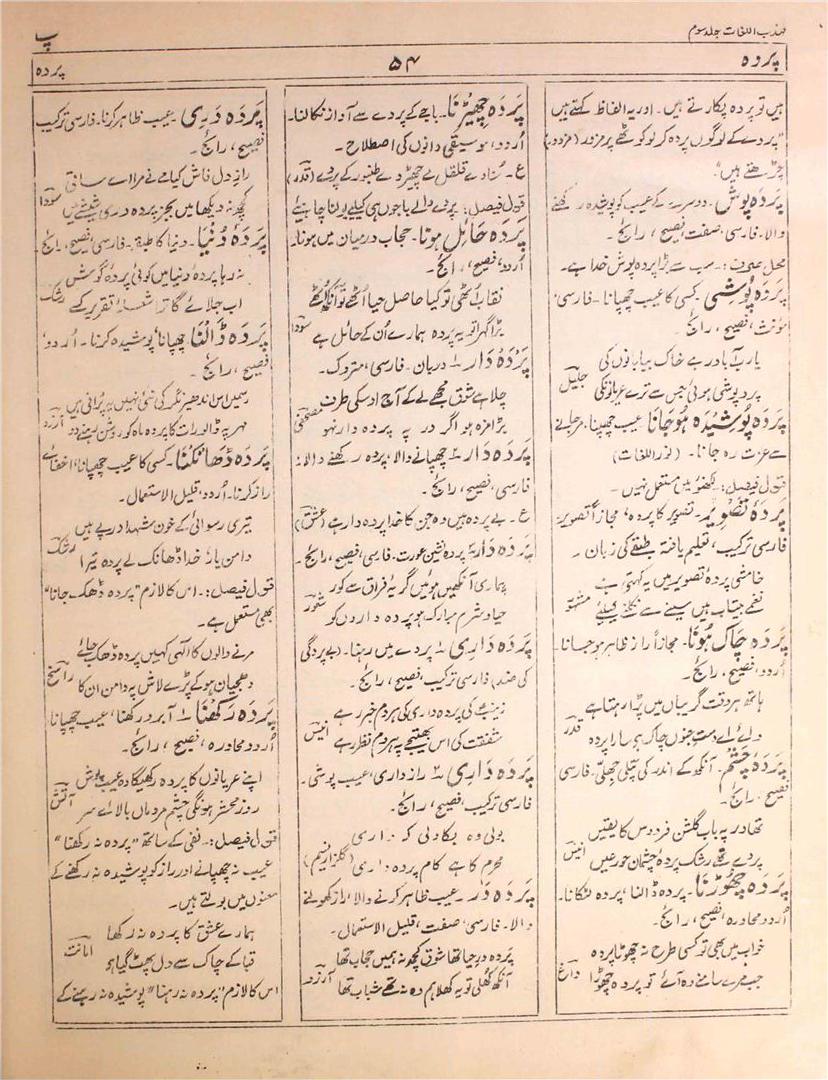 مہذب اللغات جلد سوم
پ
پردہ
۵۴
پردہ
ہیں تو پردہ پکارتے ہیں۔ اور یہ الفاظ کہتے ہیں
"پردے کے لوگوں پردہ کرلو کوٹھے پر مزدور (مزدور)
چڑھتے ہیں"
پردہ پوش۔ دوسرے کے عیوب کو پوشیدہ رکھنے
والا۔ فارسی، صفت، فصیح، رائج۔
محل صرف:۔ سب سے بڑا پردہ پوش خدا ہے۔
پردہ پوشی۔ کسی کا عیب چھپانا۔ فارسی،
مونث، فصیح، رائج۔
یارب آباد رہے خاک بیابانوں کی
پردہ پوشی ہوئی جس سے ترے عریانوں کی جلیل
پردہ پوشیدہ ہو جانا۔ عیب چھپنا، مر جانے
سے عزت رہ جانا۔ (نوراللغات)
قول فیصل:۔ لکھنؤ میں مستعمل نہیں۔
پردۂ تصویر۔ تصویر کا پردہ، مجازاً تصویر۔
فارسی ترکیب، تعلیم یافتہ طبقے کی زبان۔
خامشی پردۂ تصویر میں یہ کہتی ہے
نغمے بیتاب ہیں سینے سے نکلنے کیلئے
پردہ چاک ہونا۔ مجازاً راز ظاہر ہو جانا۔
اُردو، فصیح، رائج۔
ہاتھ ہر وقت گریباں میں پڑا رہتا ہے
وائے اے دست جنوں چاک ہی سارا پردہ قدر
پردۂ چشم۔ آنکھ کے اندر کی پتلی جھلّی۔ فارسی
فصیح، رائج۔
تھا در پہ باب گلشن فردوس کا یقیں
پردے تھے رشک پردۂ چشمان حور عیں انیس
پردہ چھوڑنا۔ پردہ ڈالنا، پردہ لٹکانا۔
اُردو محاورہ، فصیح، رائج۔
خواب میں بھی تو کسی طرح نہ چھوٹا پردہ
جب مرے سامنے وہ آئے تو پردہ چھوڑا داغ
پردہ چھیڑنا۔ باجے کے پردے سے آواز نکالنا۔
اُردو، موسیقی دانوں کی اصطلاح۔
ع۔ سُنا دے قلقل مے چھیڑ دے طنبور کے پردے (قدر)
قول فیصل: پردے والے باجوں ہی کیلئے بولنا چاہیئے
پردہ حائل ہونا۔ حجاب درمیان میں ہونا۔
اُردو، فصیح، رائج۔
نقاب اُٹھی تو کیا حاصل حیا اُٹھے تو آنکھ اُٹھے
بڑا گہرا تو یہ پردہ ہمارے اُن کے حائل ہے
پردہ دار ۱۔ دربان۔ فارسی، متروک۔
چلا ہے شوق مجھے لے کے آج اوسکی طرف
بڑا مزہ ہو اگر در پہ پردہ دار نہو مصحفی
پردہ دار ۲۔ چھپانے والا، پردہ رکھنے والا۔
فارسی، فصیح، رائج۔
ع۔ بے پردہ ہیں وہ جن کا خدا پردہ دار ہے (عشق)
پردہ دار ۳۔ پردہ نشین عورت۔ فارسی، فصیح، رائج۔
ہماری آنکھیں ہوئیں گریۂ فراق سے کور
حیا و شرم مبارک ہو پردہ داروں کو شعور
پردہ داری ۱۔ پردے میں رہنا۔ (بے پردگی
کی ضد) فارسی ترکیب، فصیح، رائج۔
زینبؑ کی پردہ داری کی ہر دم خبر رہے
شفقت کی اس بھتیجے پہ ہر دم نظر رہے انیس
پردہ داری ۲۔ رازداری، عیب پوشی۔
فارسی ترکیب، فصیح، رائج۔
بولی وہ بکاولی کہ داری
محرم کا ہے کام پردہ داری (گلزار نسیم)
پردہ در۔ عیب ظاہر کرنے والا، راز کھولنے
والا۔ فارسی، صفت، قلیل الاستعمال۔
پردہ در حیا تھا شوق کچھ نہ ہمیں حجاب تھا
آنکھ کھلی تو یہ کھلا ہم وہ نہ تھے شباب تھا آرزو
پردہ دری۔ عیب ظاہر کرنا۔ فارسی ترکیب
فصیح، رائج۔
راز دل فاش کیا مے نے مرا اے ساقی
کچھ نہ دیکھا میں بجز پردہ دری شیشے میں سودا
پردۂ دُنیا۔ دنیا کا طبقہ۔ فارسی، فصیح، رائج۔
نہ رہا پردۂ دنیا میں کوئی پردۂ گوش
اب جلائے گا ترا شعلۂ تقریر کسے رشک
پردہ ڈالنا۔ چھپانا، پوشیدہ کرنا۔ اُردو،
فصیح، رائج۔
رسمیں اس اندھیر نگر کی نئی نہیں یہ پرانی ہیں
مہر پہ ڈالو رات کا پردہ ماہ کو روشن رہنے دو آرزو
پردہ ڈھانکنا۔ کسی کا عیب چھپانا، اخفائے
راز کرنا۔ اُردو، قلیل الاستعمال۔
تیری رسوائی کے خون شہدا درپے ہیں
دامن یار خدا ڈھانک لے پردہ تیرا
قول فیصل:۔ اس کا لازم "پردہ ڈھک جانا"
بھی مستعمل ہے۔
مرنے والوں کا الٰہی کہیں پردہ ڈھک جائے
دھجیاں ہو کے پڑے لاش پہ دامن ان کا راسخ
پردہ رکھنا ۱۔ آبرو رکھنا، عیب چھپانا
اُردو محاورہ، فصیح، رائج۔
اپنے عریانوں کا پردہ رکھیگا وہ عیب پوش
روز محشر ہونگی چشم مردماں بالائے سر آتش
قول فیصل:۔ نفی کے ساتھ "پردہ نہ رکھنا"
عیب نہ چھپانے اور راز کو پوشیدہ نہ رکھنے کے
معنوں میں بولتے ہیں۔
ہمارے عشق کا پردہ نہ رکھا
قبا کے چاک سے دل پھٹ گیا ہو امانت
اس کا لازم "پردہ نہ رہنا" پوشیدہ نہ رہنے کے